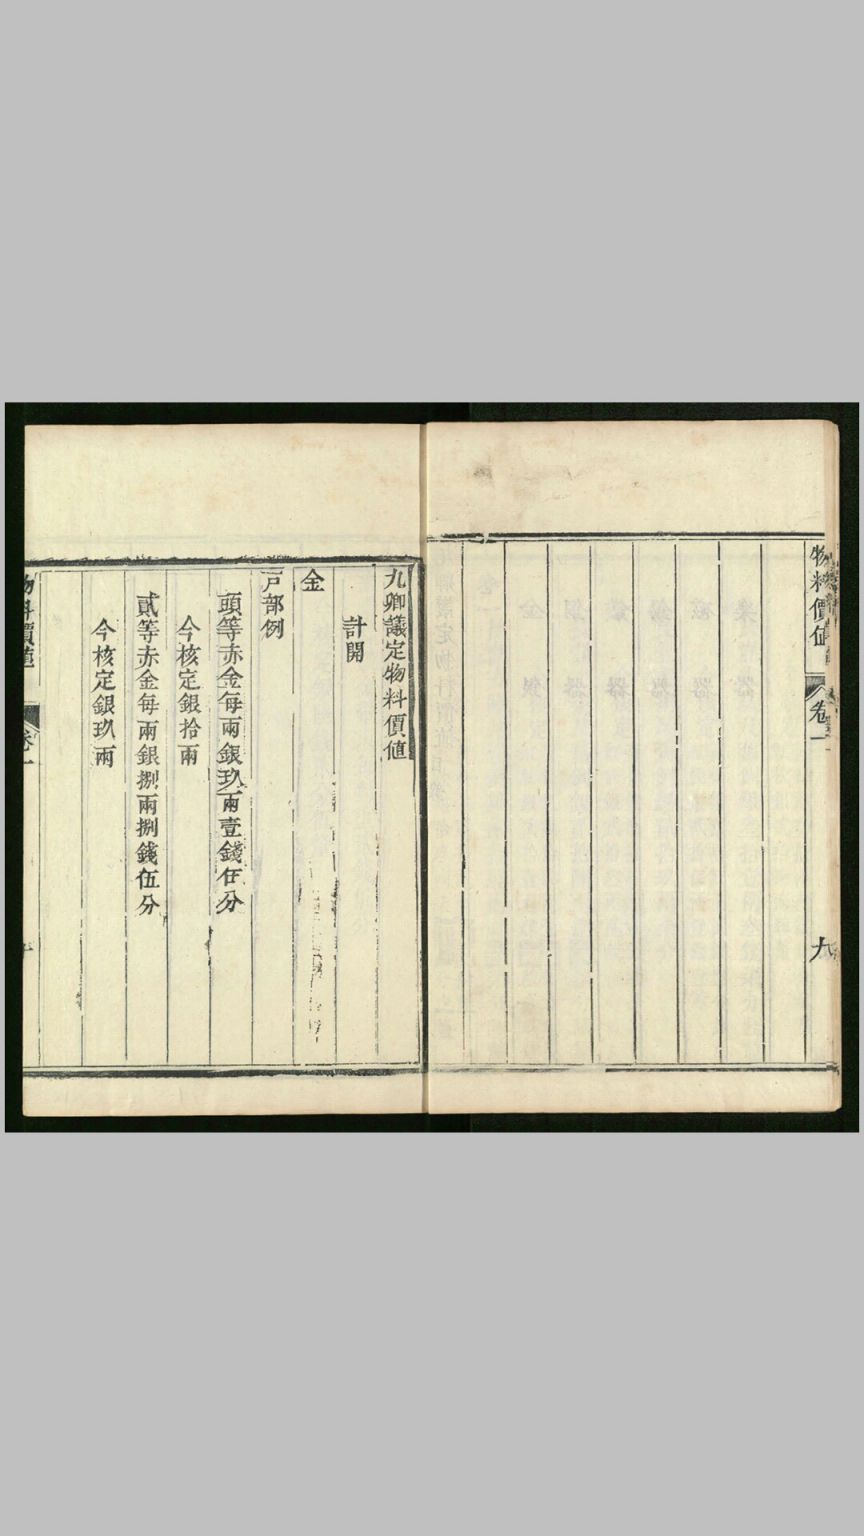 物料價值
卷一
九
九卿議定物料價値
計開
金
戸部例
頭等赤金每兩銀玖兩壹錢伍分
今核定銀拾兩
貳等赤金每兩銀捌兩捌錢伍分
今核定銀玖兩
物料價値
卷一